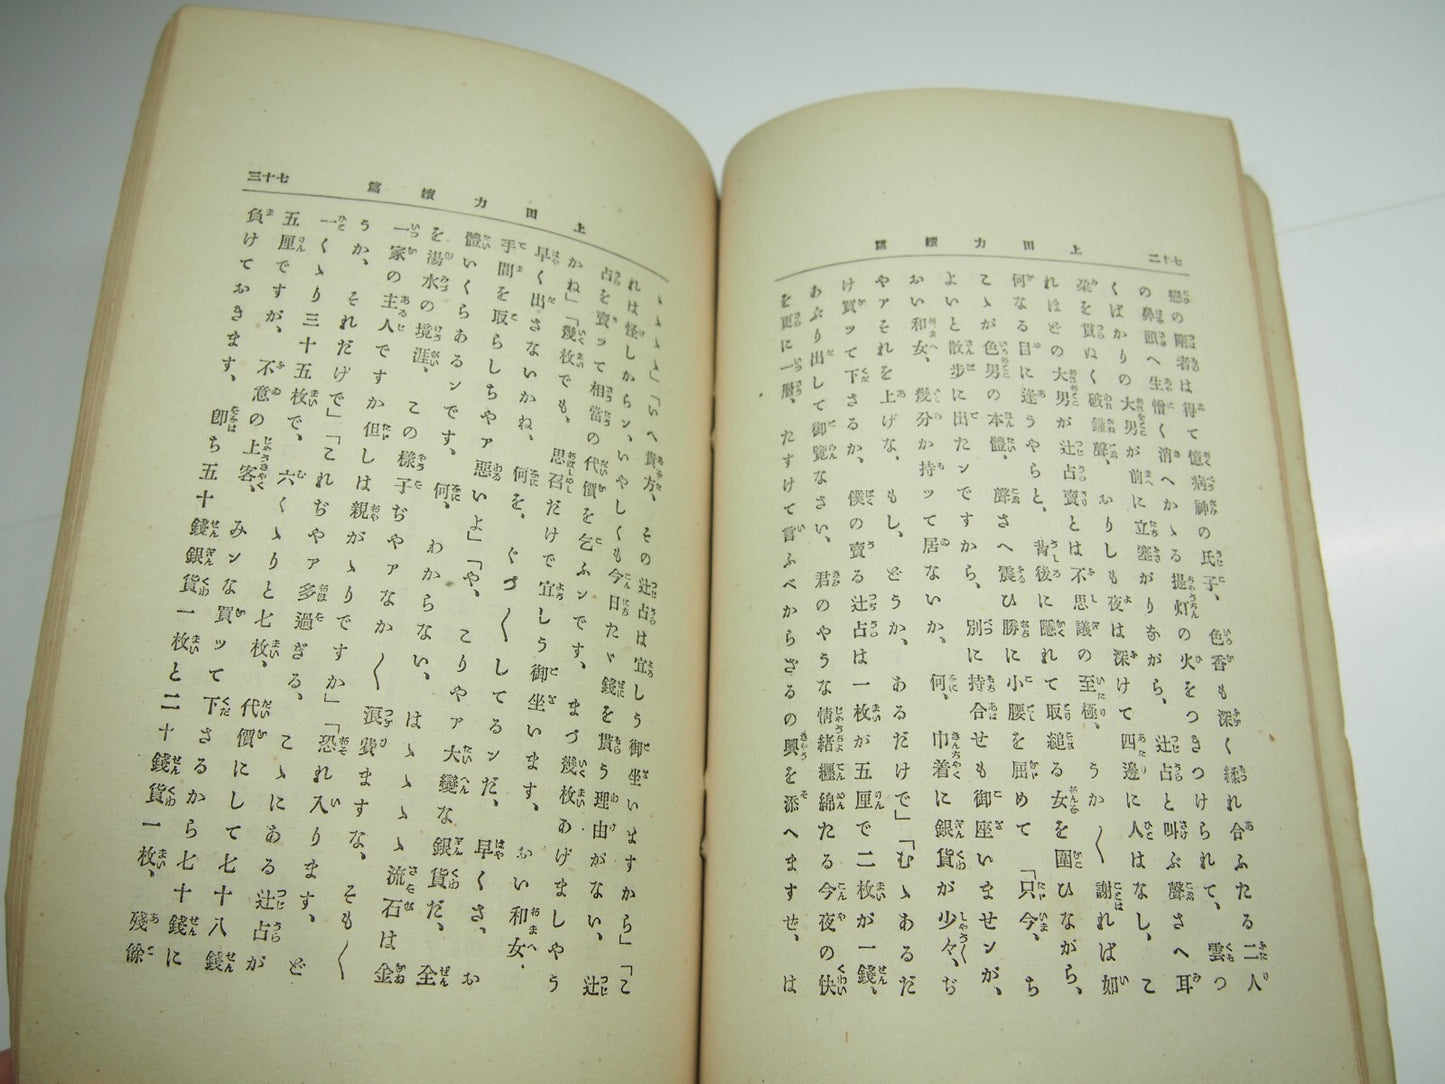 二十七
上田力續篇
戀の剛者は得て憶病神の氏子、色香も深く縺れ合ふたる二人
の鼻頭へ生憎く消へかゝる提灯の火をつきつけられて、雲つ
くばかりの大男が前に立塞がりながら、辻占と叫ぶ聲さへ耳
朶を貫ぬく破鐘聲、かりしも夜は深けて四邊に人はなし、こ
れほどの大男が辻占賣とは不思議の至極、うか〳〵謝れば如
何なる目に逢うやらと、背後に隱れて取縋る女を圍ひながら、
こゝが色男の本體、聲さへ震ひ勝に小腰を屈めて「只今、ち
よいと散步に出たンですから、別に持合せも御座いませンが、
おい和女、幾分か持ッて居ないか、何、巾着に銀貨が少々、ぢ
やァそれを上げな、もし、どうか、あるだけで」「むゝあるだ
け買ッて下さるか、僕の賣る辻占は一枚が五厘で二枚が一錢、
あぶり出して御覽なさい、君のやうな情緒纒綿たる今夜の快
を更に一層、たすけて言ふべからざるの興を添へますぜ、は
三十七
上田力續篇
ゝゝゝ」「いへ貴方、その辻占は宜しう御坐いますから」「こ
れは怪しからン、いやしくも今日たゞ錢を貰う理由がない、辻
占を賣ッて相當の代價を乞ふンです、まづ幾枚あげましやう
かね」「幾枚でも、思召だけで宜しう御坐います、おい和女、
早く出さないかね、何を、ぐづ〳〵してるンだ、早くさ、お
手間を取らしちやァ惡いよ」「や、こりやァ大變な銀貨だ、全
體いくらあるンです、何、わからない、はゝゝゝ流石は金
を湯水の境涯、この樣子ぢやァなか〳〵濵費ますな、そも〳〵
一家の主人ですか但しは親がゝりですか」「恐れ入ります、ど
うか、それだけで」「これぢやァ多過ぎる、こゝにある辻占が
一くゝり三十五枚で、六くゝりと七枚、代價にして七十八錢
五厘ですが、不意の上客、みンな買ッて下さるから七十錢に
負けておきます、卽ち五十錢銀貨一枚と二十錢銀貨一枚、殘餘